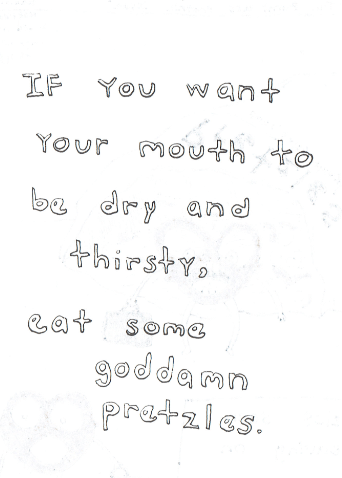 IF You want
Your mouth to
be dry and
thirsty,
eat some
goddamn
pretzles.